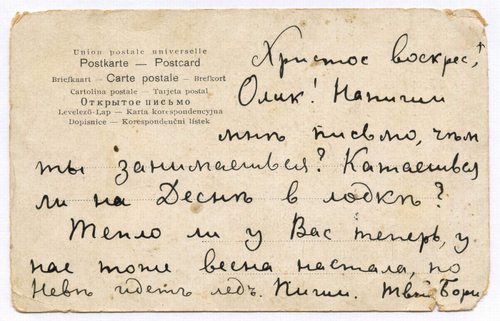 Union postale universelle
Postkarte — Postcard
Briefkaart — Carte postale — Brefkort
Cartolina postale — Tarjeta postal
Открытое письмо
Levelező-Lap — Karta korespondencyjna
Dopisnice — Korespondenční lístek
Христос воскрес,
Олик! Напиши
мнѣ письмо, чѣм
ты занимаешься? Катаешься
ли на Деснѣ в лодкѣ?
Тепло ли у Вас теперь, у
нас тоже весна настала, по
Невѣ идетъ ледъ. Пиши. Твой Боря